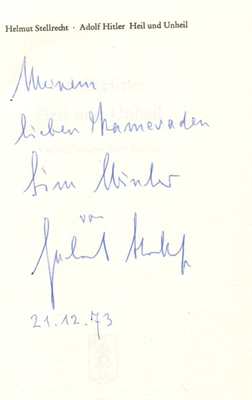 Helmut Stellrecht · Adolf Hitler Heil und Unheil
Meinem
lieben Kameraden
von
Helmut Stellrecht
21.12.73